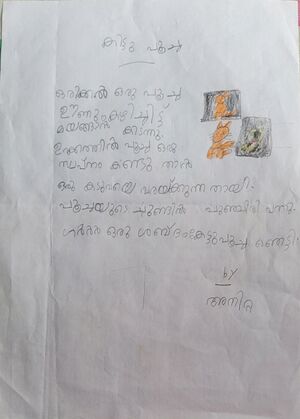 കിട്ടു പൂച്ച
ഒരിക്കൽ ഒരു പൂച്ച
ഊണും കഴിച്ചിട്ട്
മയങ്ങാൻ കിടന്നു.
ഉറക്കത്തിൽ പൂച്ച ഒരു
സ്വപ്നം കണ്ടു താൻ
ഒരു കടുവയെ വരയ്ക്കുന്ന തായി.
പൂച്ചയുടെ ചുണ്ടിൽ പുഞ്ചിരി വന്നു.
ഗർർർ ഒരു ശബ്ദംകേട്ടു പൂച്ച ഞെട്ടി.
by